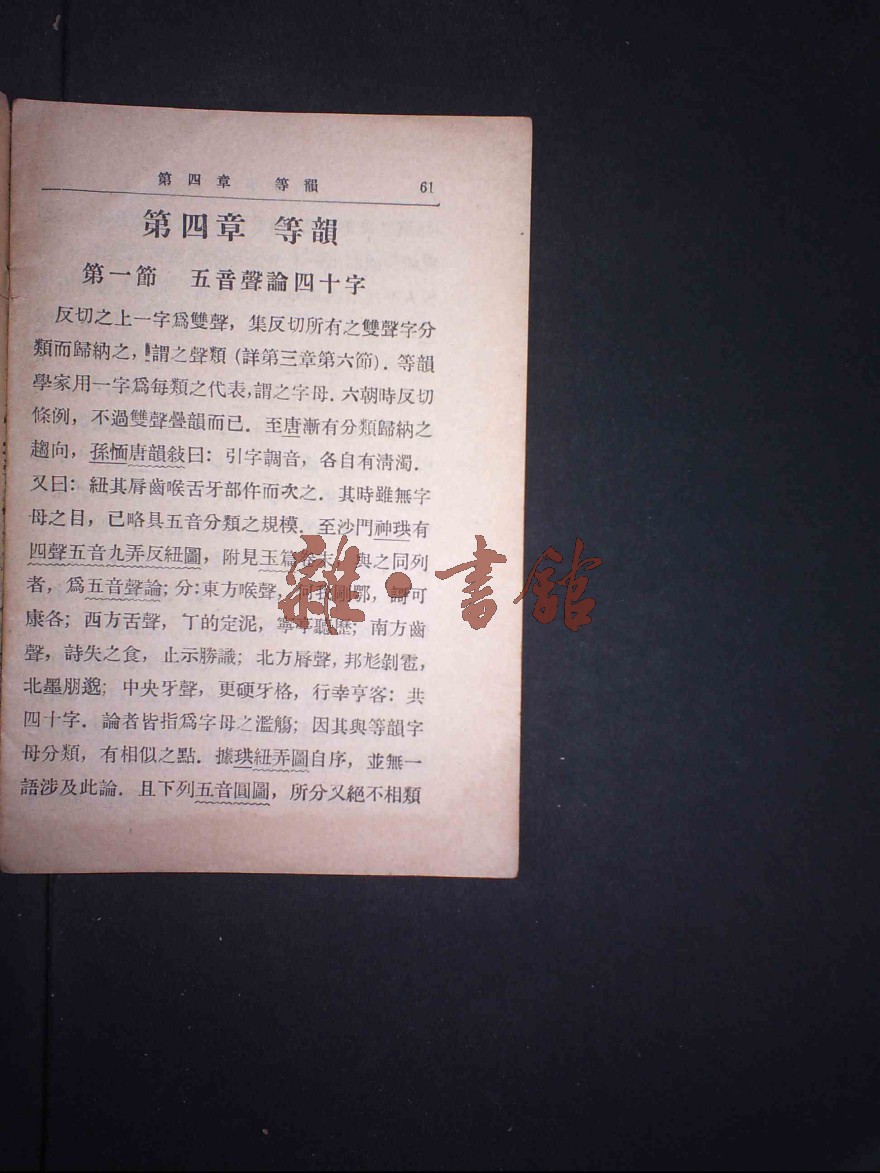 第四章 等韻 61
第四章 等韻
第一節 五音聲論四十字
反切之上一字爲雙聲，集反切所有之雙聲字分
類而歸納之，謂之聲類（詳第三章第六節）．等韻
學家用一字爲每類之代表，謂之字母．六朝時反切
條例，不過雙聲疊韻而已．至唐漸有分類歸納之
趨向，孫愐唐韻敍曰：引字調音，各自有淸濁．
又曰：紐其脣齒喉舌牙部仵而次之．其時雖無字
母之目，已略具五音分類之規模．至沙門神珙有
四聲五音九弄反紐圖，附見玉篇卷末，與之同列
者，爲五音聲論；分：東方喉聲，何我剛鄂，謌可
康各；西方舌聲，丁的定泥，寧亭聽歷；南方齒
聲，詩失之食，止示勝識；北方脣聲，邦尨剝雹，
北墨朋邈；中央牙聲，更硬牙格，行幸亨客：共
四十字．論者皆指爲字母之濫觴；因其與等韻字
母分類，有相似之點．據珙紐弄圖自序，並無一
語涉及此論．且下列五音圓圖，所分又絕不相類
雜·書館